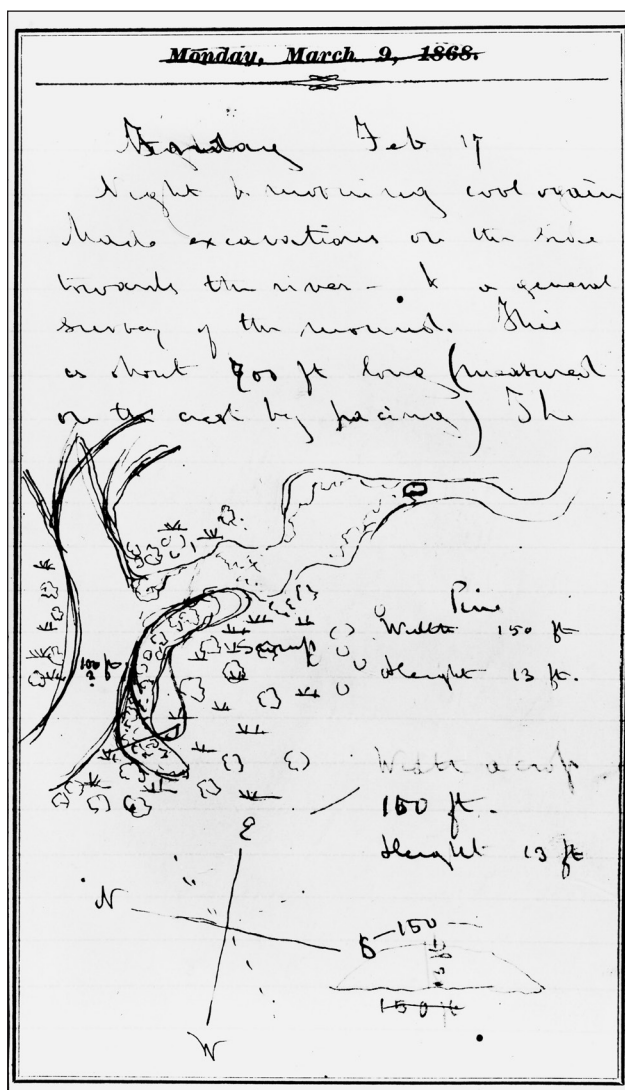 Monday, March 9, 1868.
Monday Feb 17
Night & morning cool again
Made excavations on the side
towards the river - & a general
survey of the mound. This
is about 700 ft long (measured
on the crest by pacing) The
100 ft
?
Swamp
Pine
Width 150 ft
Height 13 ft.
Width
150 ft.
Height 13 ft
E
N
S
W
150
150 ft